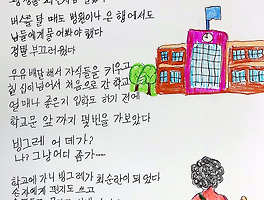 버스를 탈 때도 병원이나 은행에서도
남들에게 물어봐야 했다
정말 부끄러웠다
우유 배달해서 자식들을 키우고
칠십이 넘어서 처음으로 간 학교
얼마나 좋은지 입학도 하기 전에
학교문 앞까지 몇번을 가보았다
빙그레 어데가?
나? 그냥 어디 좀 가......
학교에 가니 빙그레가 최순란이 되었다
손자에게 편지도 쓰고